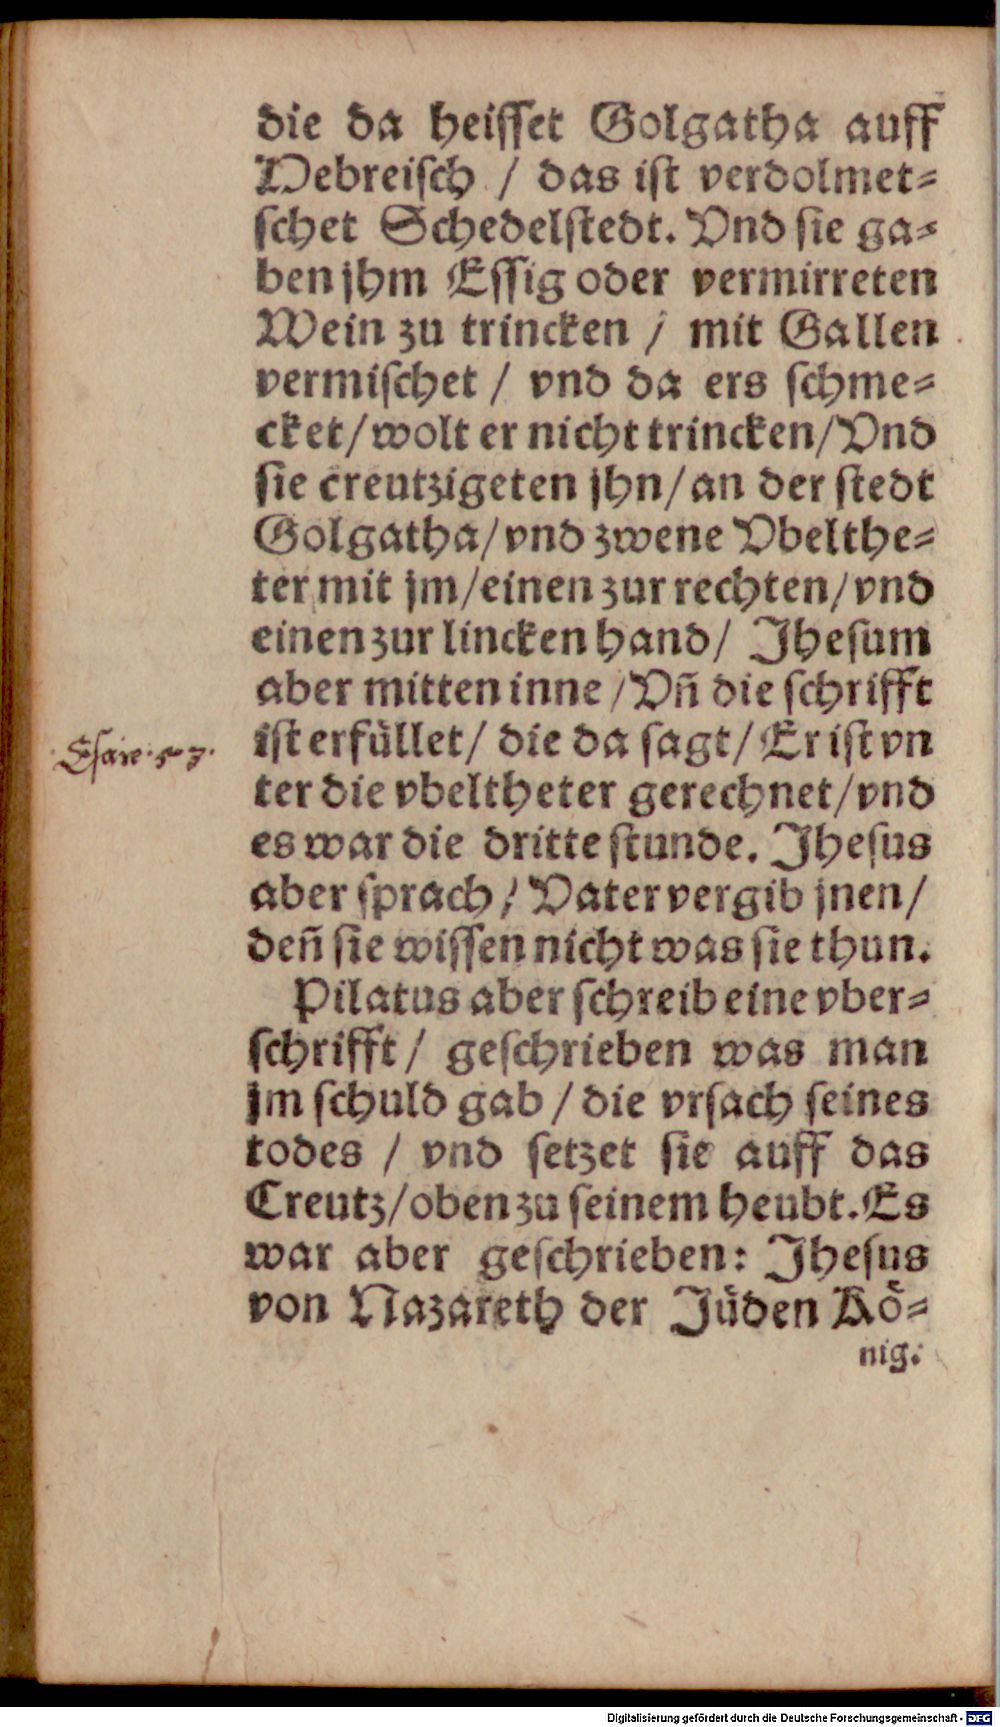 die da heisset Golgatha auff
Hebreisch / das ist verdolmet-
schet Schedelstedt. Vnd sie ga-
ben jhm Essig oder vermirreten
Wein zu trincken / mit Gallen
vermischet / vnd da ers schme-
cket/wolt er nicht trincken/Vnd
sie creutzigeten jhn/an der stedt
Golgatha/vnd zwene Vbelthe-
ter mit jm/einen zur rechten/vnd
einen zur lincken hand/ Jhesum
aber mitten inne /Vn̄ die schrifft
ist erfüllet/ die da sagt/Er ist vn
Esaie 53. ter die vbeltheter gerechnet/vnd
es war die dritte stunde. Jhesus
aber sprach / Vater vergib jnen/
den̄ sie wissen nicht was sie thun.
Pilatus aber schreib eine vber-
schrifft/ geschrieben was man
jm schuld gab / die vrsach seines
todes / vnd setzet sie auff das
Creutz/oben zu seinem heubt. Es
war aber geschrieben: Jhesus
von Nazareth der Jüden Kö-
nig.
Digitalisierung gefördert durch die Deutsche Forschungsgemeinschaft - DFG